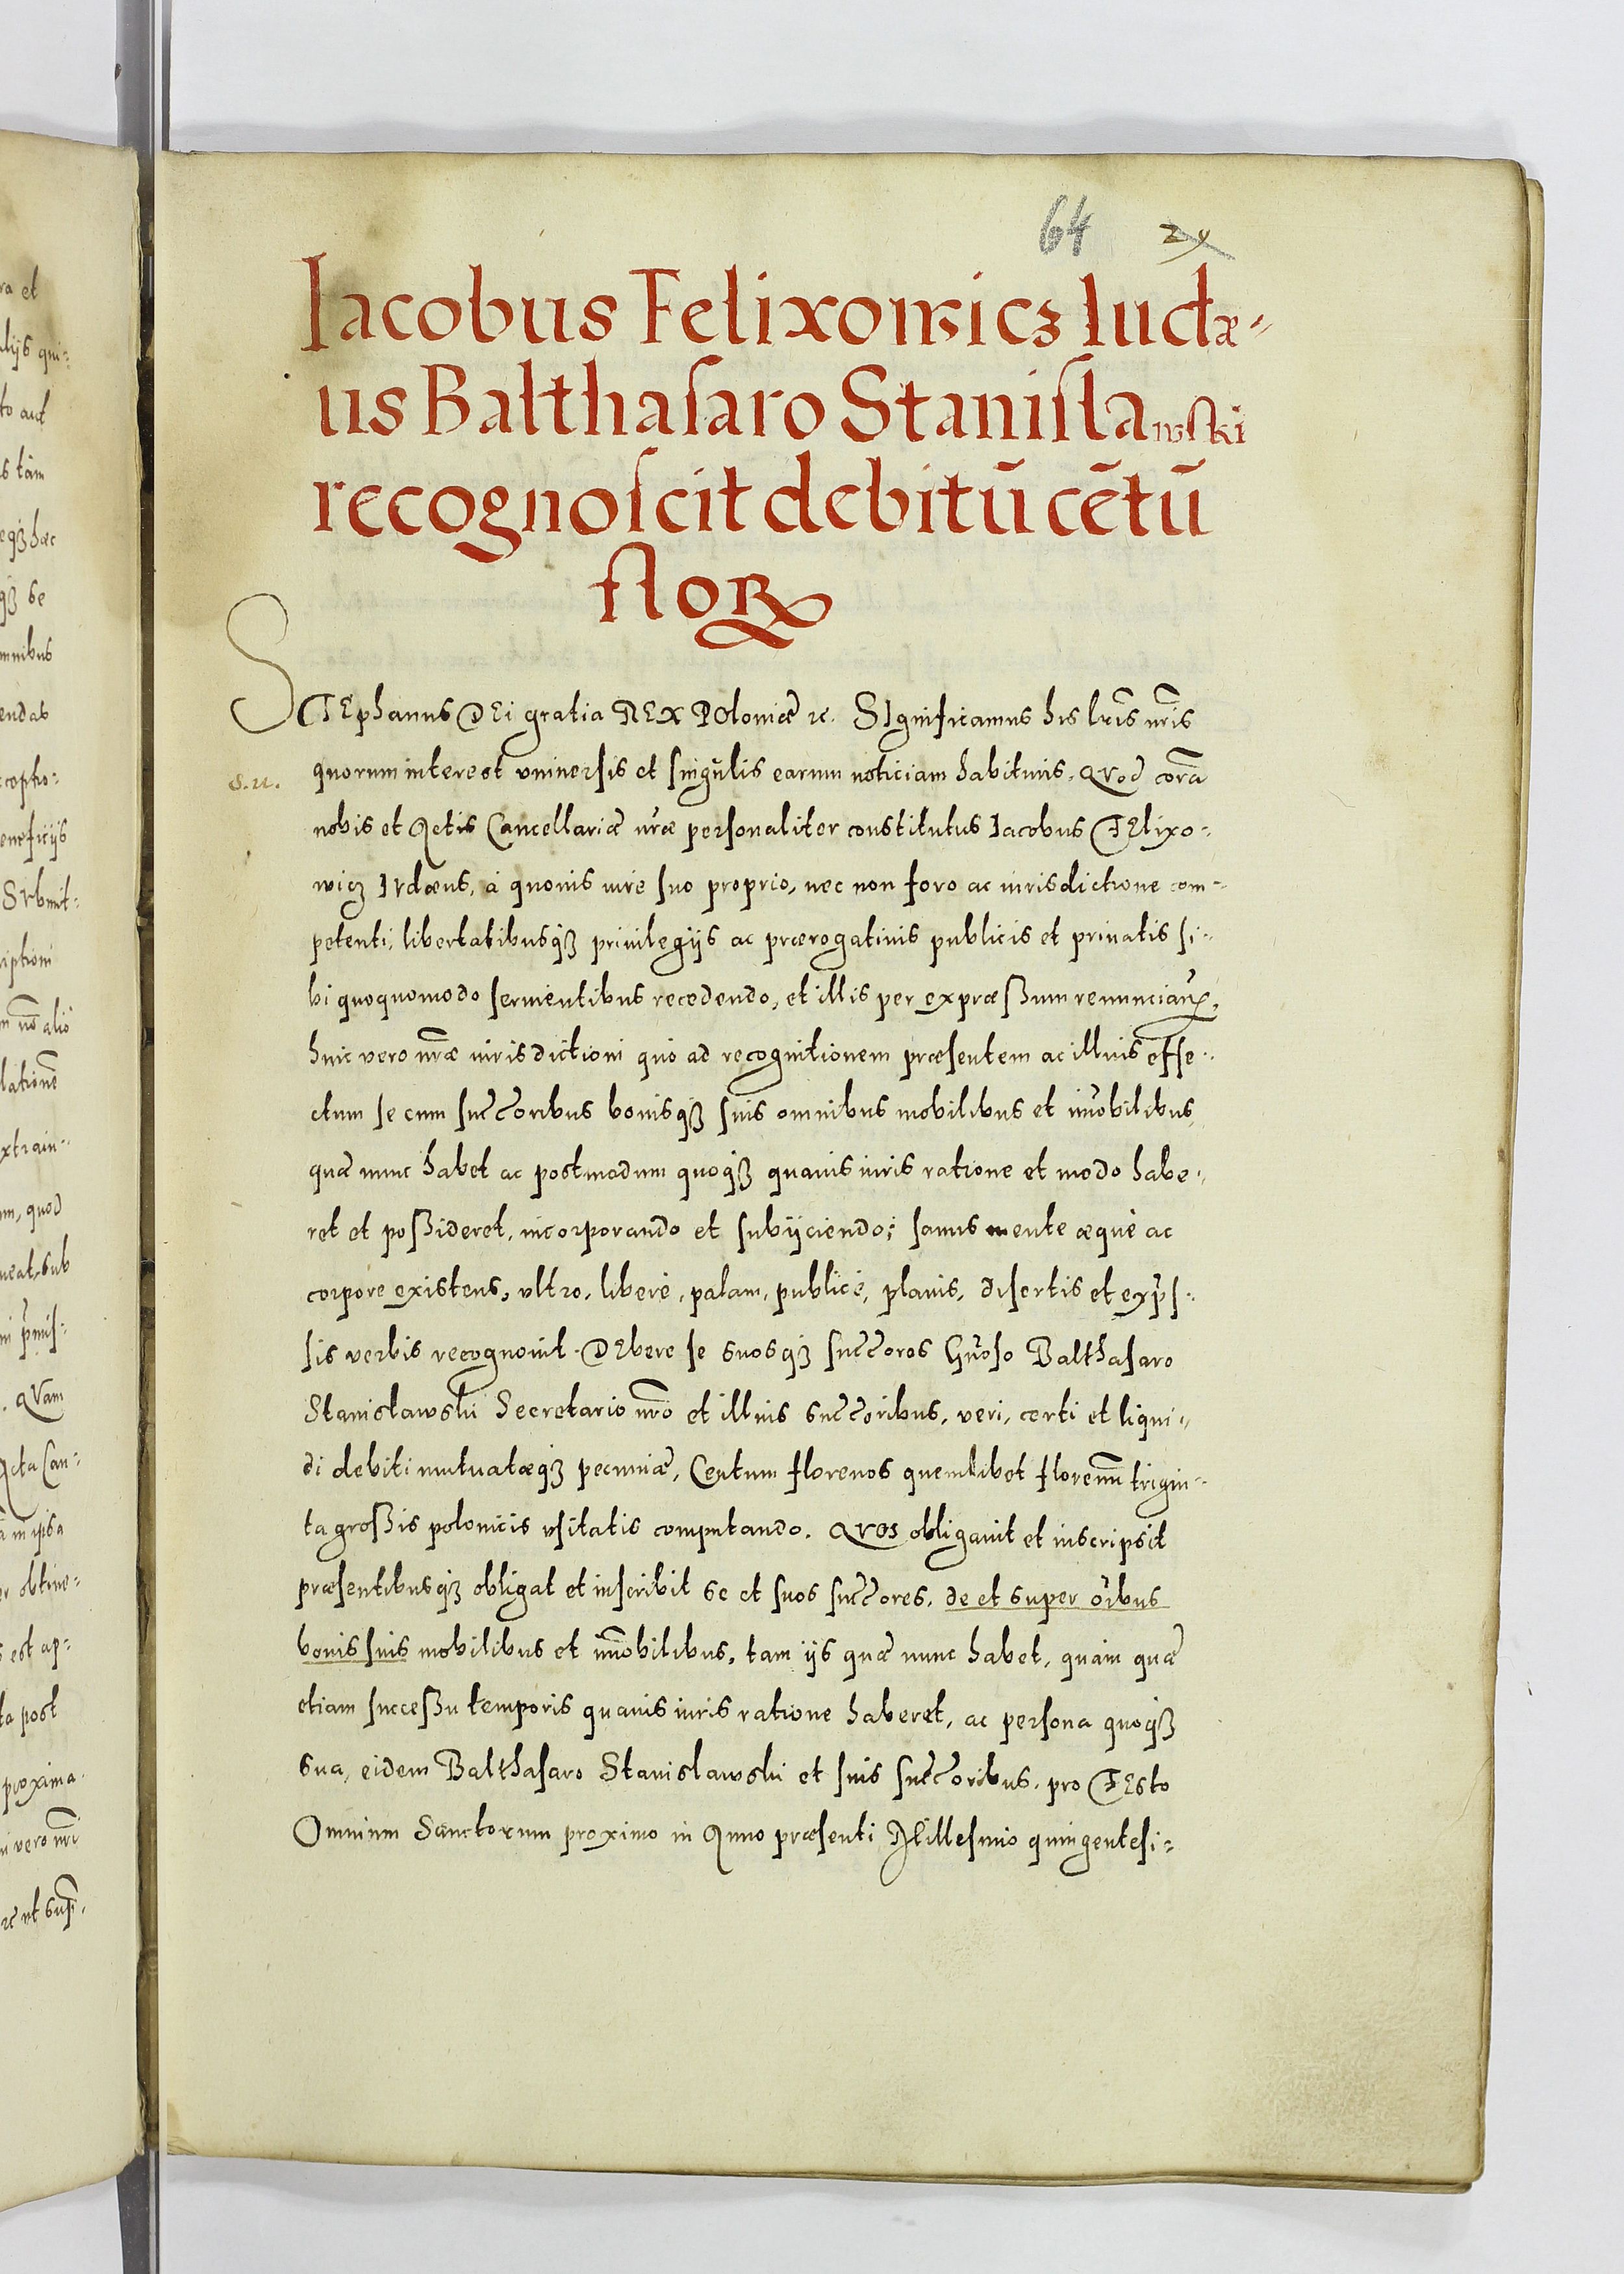 64 24
Iacobus Felixowicz Iudæ-
us Balthasaro Stanislawski
recognoscit debitū cētū
floꝝ
STEphanus DEi gratia REX POloniæ ꝛc. SIgnificamus his lr̃is nr̃is
quorum interest vniuersis et singulis earum noticiam habituris. QVod corā
S. R.
nobis et Actis Cancellariæ nr̃æ personaliter constitutus Iacobus FElixo-
wicz IVdæus, à quouis iure suo proprio, nec non foro ac iurisdictione com-
petenti, libertatibusqȝ priuilegijs ac prærogatiuis publicis et priuatis si-
bi quoquomodo seruientibus recedendo, et illis per expræßum renuncian̄,
huic vero nr̃æ iurisdictioni quo ad recognitionem præsentem ac illius effe-
ctum se cum succ̄oribus bonisqȝ suis omnibus mobilibus et im̄obilibus,
quæ nunc habet ac postmodum quoqȝ quauis iuris ratione et modo habe-
ret et poßideret, incorporando et subijciendo; sanus mente æque ac
corpore existens, vltro, liberè, palam, publicè, planis, disertis et exp̄s-
sis verbis recognouit. DEbere se suosqȝ succ̄ores Gn̄oso Balthasaro
Stanislawski Secretario nr̃o et illius succ̄oribus, veri, certi et liqui-
di debiti mutuatæqȝ pecuniæ, Centum florenos quemlibet florenum trigin-
ta großis polonicis vsitatis computando. QVos obligauit et inscripsit
præsentibusqȝ obligat et inscribit se et suos succ̄ores, de et super oībus
bonis suis mobilibus et im̄obilibus, tam ijs quæ nunc habet, quàm quæ
etiam succeßu temporis quauis iuris ratione haberet, ac persona quoqȝ
sua, eidem Balthasaro Stanislawski et suis succ̄oribus. pro FEsto
Omnium Sanctorum proximo in Anno præsenti Millesimo quingentesi-